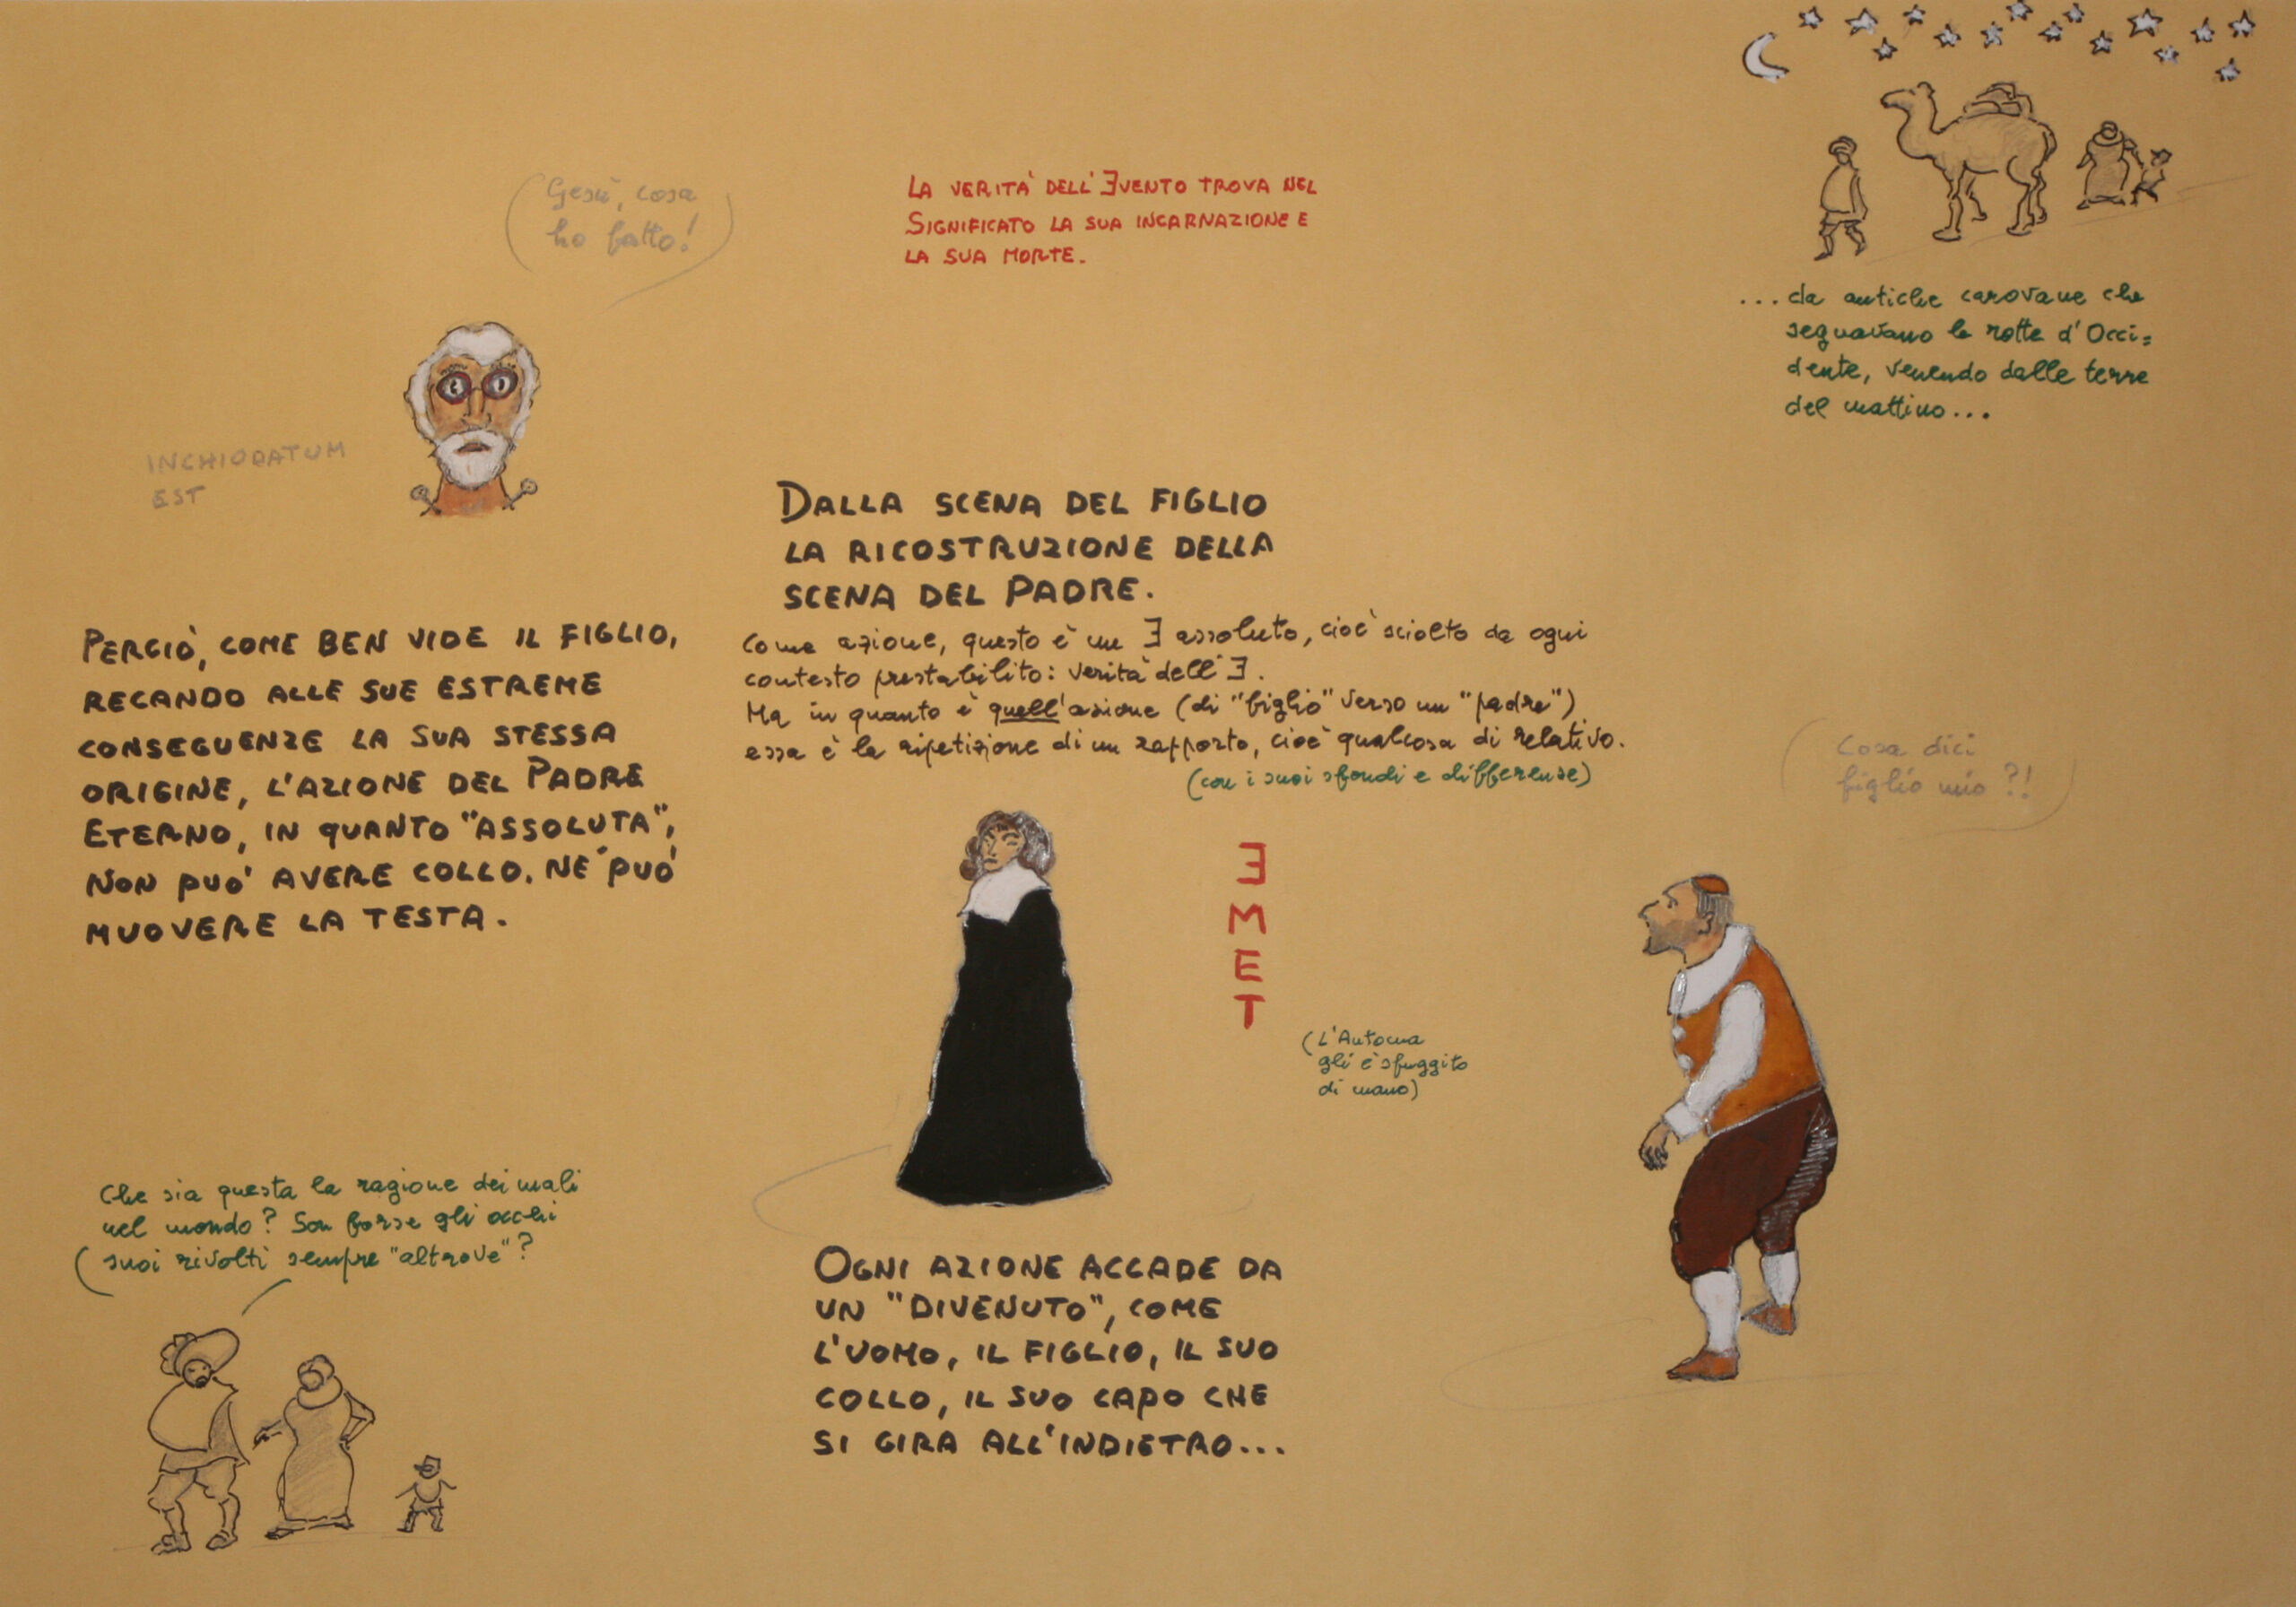 Gesù, cosa
ho fatto!
LA VERITÀ DELL'ƎVENTO TROVA NEL
SIGNIFICATO LA SUA INCARNAZIONE E
LA SUA MORTE.
...da antiche carovane che
seguavano le rotte d'Occi=
dente, venendo dalle terre
del mattino...
INCHIODATUM
EST
DALLA SCENA DEL FIGLIO
LA RICOSTRUZIONE DELLA
SCENA DEL PADRE.
Come azione, questo è un Ǝ assoluto, cioè sciolto da ogni
contesto prestabilito: verità dell'Ǝ.
Ma in quanto è quell'azione (di "figlio" verso un "padre")
essa è la ripetizione di un rapporto, cioè qualcosa di relativo.
(con i suoi sfondi e differenze)
PERCIÒ, COME BEN VIDE IL FIGLIO,
RECANDO ALLE SUE ESTREME
CONSEGUENZE LA SUA STESSA
ORIGINE, L'AZIONE DEL PADRE
ETERNO, IN QUANTO "ASSOLUTA",
NON PUO' AVERE COLLO. NÉ PUO'
MUOVERE LA TESTA.
Cosa dici
figlio mio?!
Ǝ
M
E
T
(L'Automa
gli è sfuggito
di mano)
Che sia questa la ragione dei mali
nel mondo? Son forse gli occhi
suoi rivolti sempre "altrove"?
OGNI AZIONE ACCADE DA
UN "DIVENUTO", COME
L'UOMO, IL FIGLIO, IL SUO
COLLO, IL SUO CAPO CHE
SI GIRA ALL'INDIETRO...